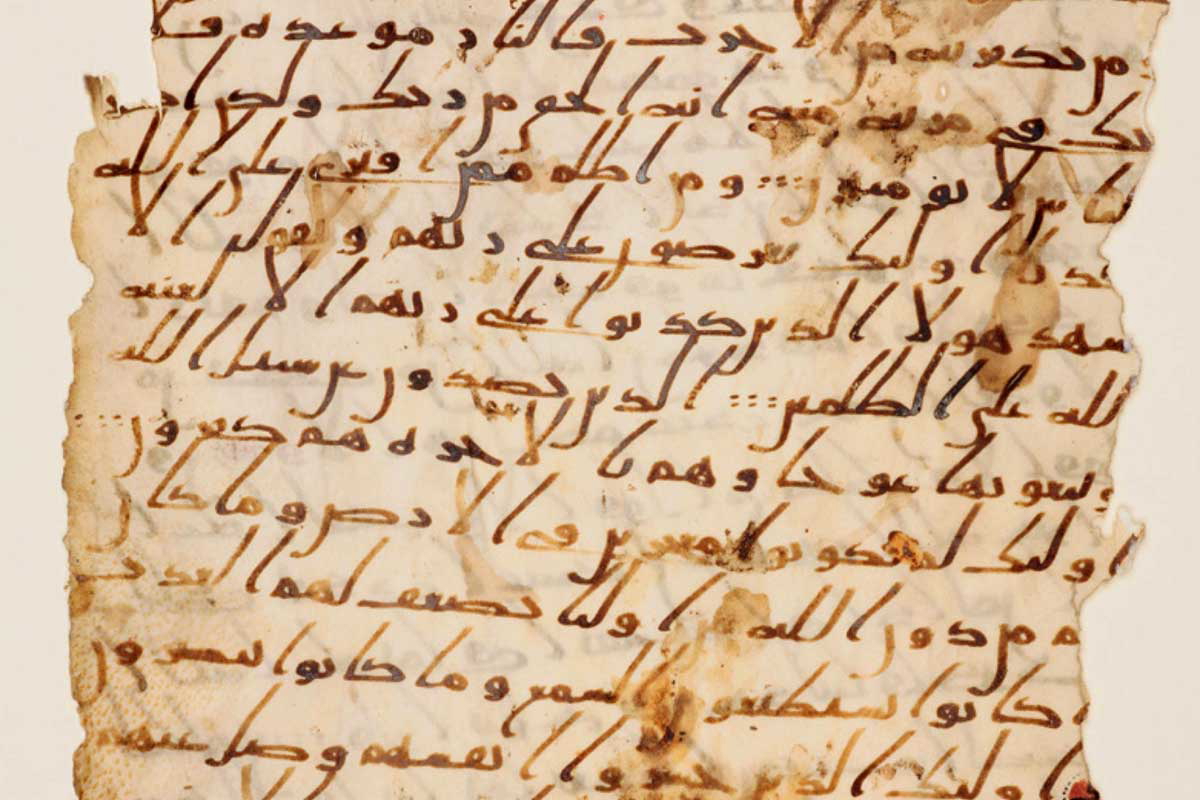 من يكفر به من الاحزب فالنار موعده فلا
تك في مرية منه انه الحق من ربك ولكن اكثر
الناس لا يومنون ومن اظلم ممن افترى على الله
كذبا اوليك يعرضون على ربهم ويقول الا
شهد هولا الذين كذبوا على ربهم الا لعنة
الله على الظلمين الذين يصدون عن سبيل الله
ويبغونها عوجا وهم بالاخرة هم كفرون
اوليك لم يكونوا معجزين في الارض وما كان
لهم من دون الله من اوليا يضعف لهم العذب
ما كانوا يستطيعون السمع وما كانوا يبصرون
اوليك الذين خسروا انفسهم وضل عنهم